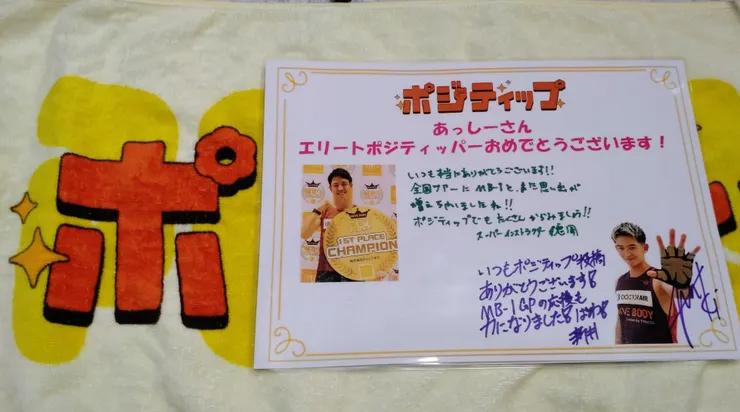 ポ
ポジティップ
あっしーさん
エリートポジティッパーおめでとうございます！
いつも本当にありがとうございます!!
全国ツアーにMB-1と、また思い出が
増えちゃいましたね!!
ポジティップでもたくさんからみましょう!!
スーパーインストラクター
1ST PLACE
CHAMPION
いつもポジティップ投稿
ありがとうございます!
MB-1GPの応援も
力になりました!
DOCTORAIR
BODY